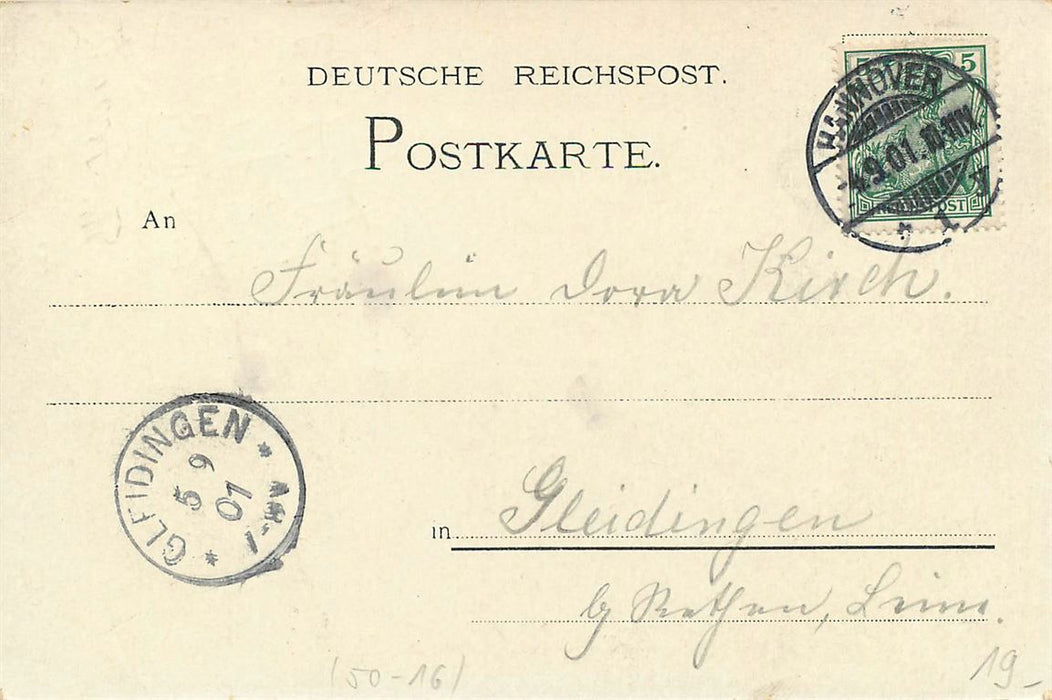 DEUTSCHE REICHSPOST.
POSTKARTE.
5 5
HANNOVER
4.9.01. 10-11N
* 1. *
REICHSPOST
An
Fräulein Dora Kirch.
GLEIDINGEN
5 9
01
in Gleidingen
b/ Rethen, Leine.
(50-16)
19-